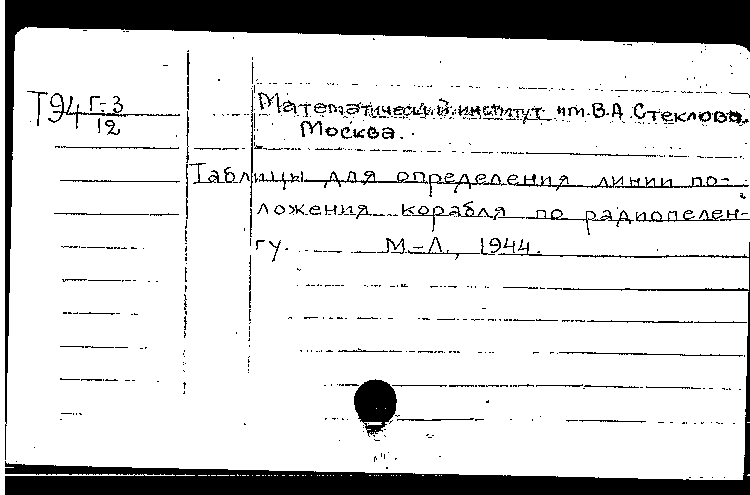 Т94 Г-3
12
Математический институт им. В.А. Стеклова.
Москва.
Таблицы для определения линии по-
ложения корабля по радиопелен-
гу. М-Л., 1944.